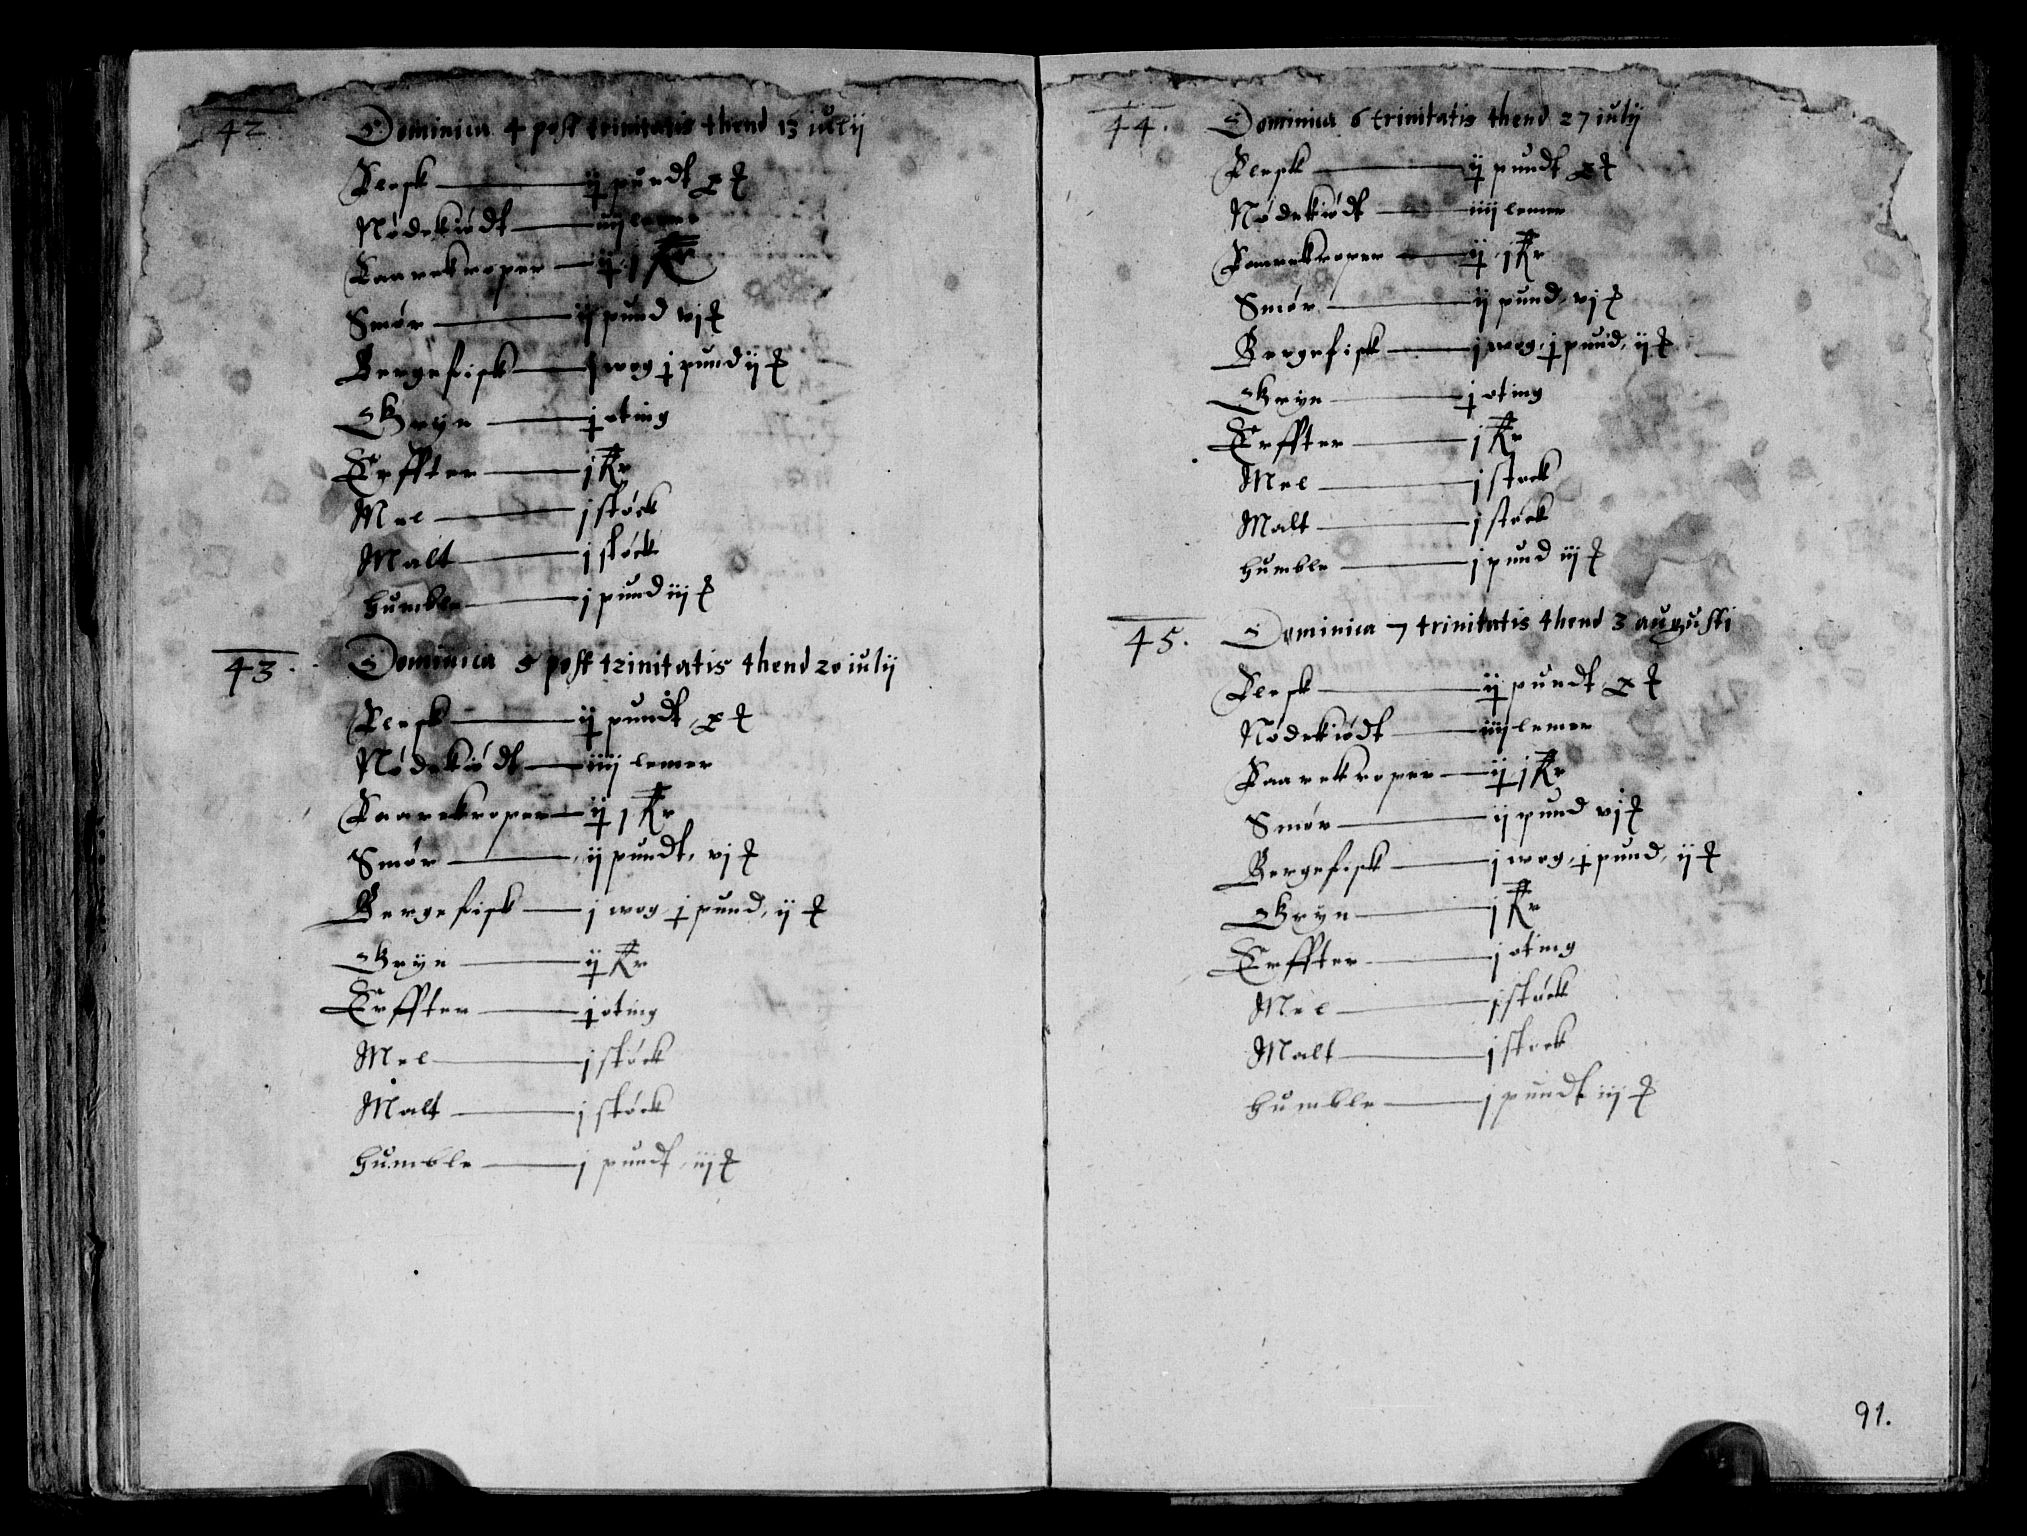 42
Dominica 4 post trinitatis thend 13 iulij
Flesk — ij pundt x ℔
Nødekiødt — iiij lemer
Faarekroper — ij j Kr
Smør — ij pund vj ℔
Bergefisk — j wog j pund ij ℔
Gryn — j oting
Erffter — j Kr
Mel — j støck
Malt — j støck
Humble — j pund iij ℔
43.
Dominica 5 post trinitatis thend 20 iulij
Flesk — ij pundt x ℔
Nødekiødt — iiij lemer
Faarekroper — ij j Kr
Smør — ij pundt, vj ℔
Bergefisk — j wog j pund, ij ℔
Gryn — ij Kr
Erffter — j oting
Mel — j støck
Malt — j støck
Humble — j pundt iij ℔
44.
Dominica 6 trinitatis thend 27 iulij
Flesk — ij pundt x ℔
Nødekiødt — iiij lemer
Faarekroper — ij j Kr
Smør — ij pund, vj ℔
Bergefisk — j wog, j pund, ij ℔
Gryn — j oting
Erffter — j Kr
Mel — j støck
Malt — j støck
Humble — j pund iij ℔
45.
Dominica 7 trinitatis thend 3 augusti
Flesk — ij pundt x ℔
Nødekiødt — iiij lemer
Faarekroper — ij j Kr
Smør — ij pund vj ℔
Bergefisk — j wog, j pund, ij ℔
Gryn — j Kr
Erffter — j oting
Mel — j støck
Malt — j støck
Humble — j pundt iij ℔
91.